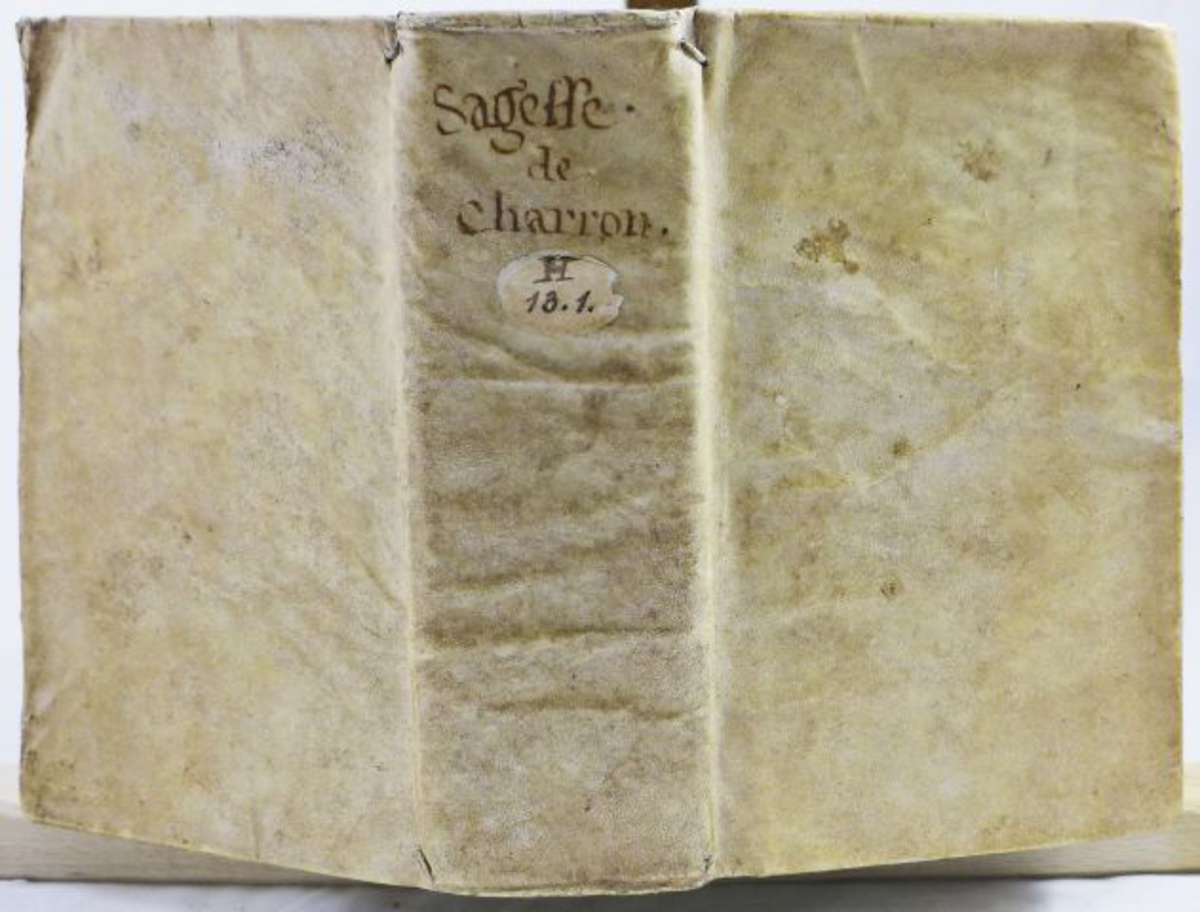 Sageſſe.
de
Charron.
H
13.1.